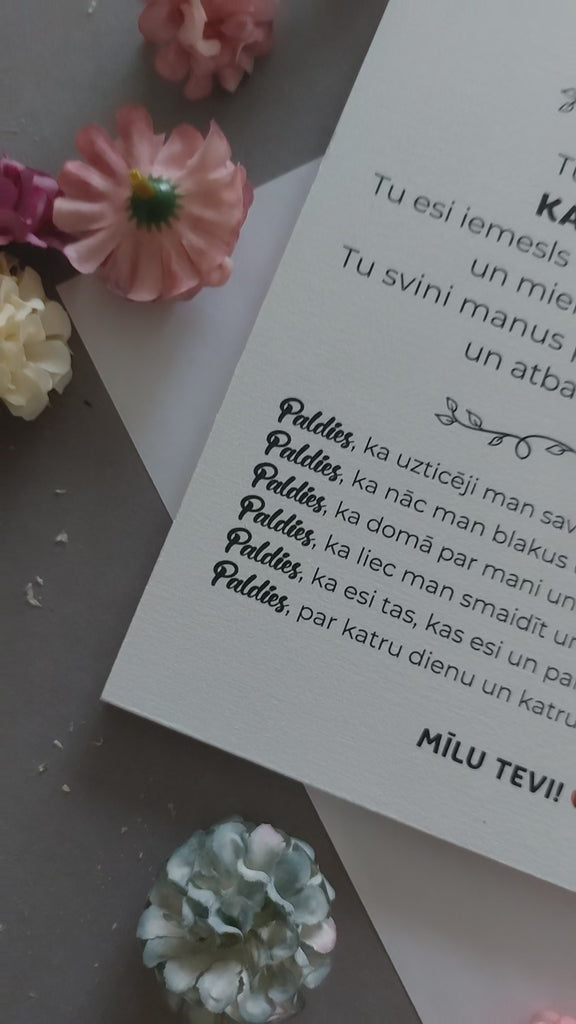 Tu esi iemesls
un
Tu svini manus
un
Paldies, ka uzticēji man
Paldies, ka nāc man blakus
Paldies, ka domā par mani un
Paldies, ka liec man smaidīt
Paldies, ka esi tas, kas esi un
Paldies, par katru dienu un katru
MĪLU TEVI!